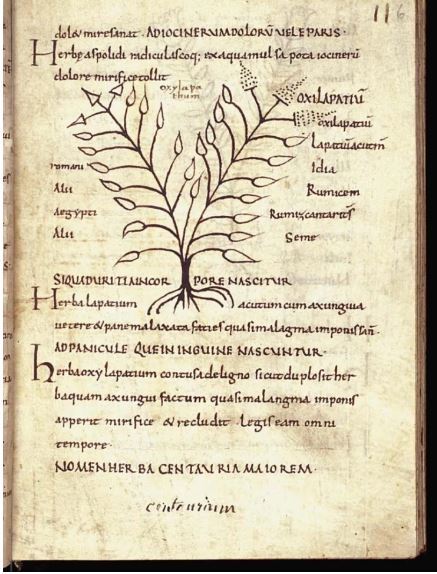 116
dolore mire sanat · AD IOCINERUM DOLORŪ VEL EPARIS ·
Herbe aspolidi radiculas coq; ex aqua mulsa pota iocinerū
dolore mirifice tollit
oxylapa
thum
OXILAPATIŪ
oxilapatiū
Lapatiū acutum
romani
Idia
Alii
Rumicem
Aegypti
Rumix cantaris
Alii
Seme
SIQUA DURITIA IN CORPORE NASCITUR
Herba lapatium acutum cum axungia
vetere & pane malaxata facies quasi malagma imponis san̄.
AD PANICULE QUE IN INGUINE NASCUNTUR ·
herba oxylapatium contusa de ligno sicut duplosit her
baquam axungui factum quasi malangma imponis
apperit mirifice & recludit · legis eam omni
tempore ·
NOMEN HERBA CENTAURIA MAIOREM ·
centaurium